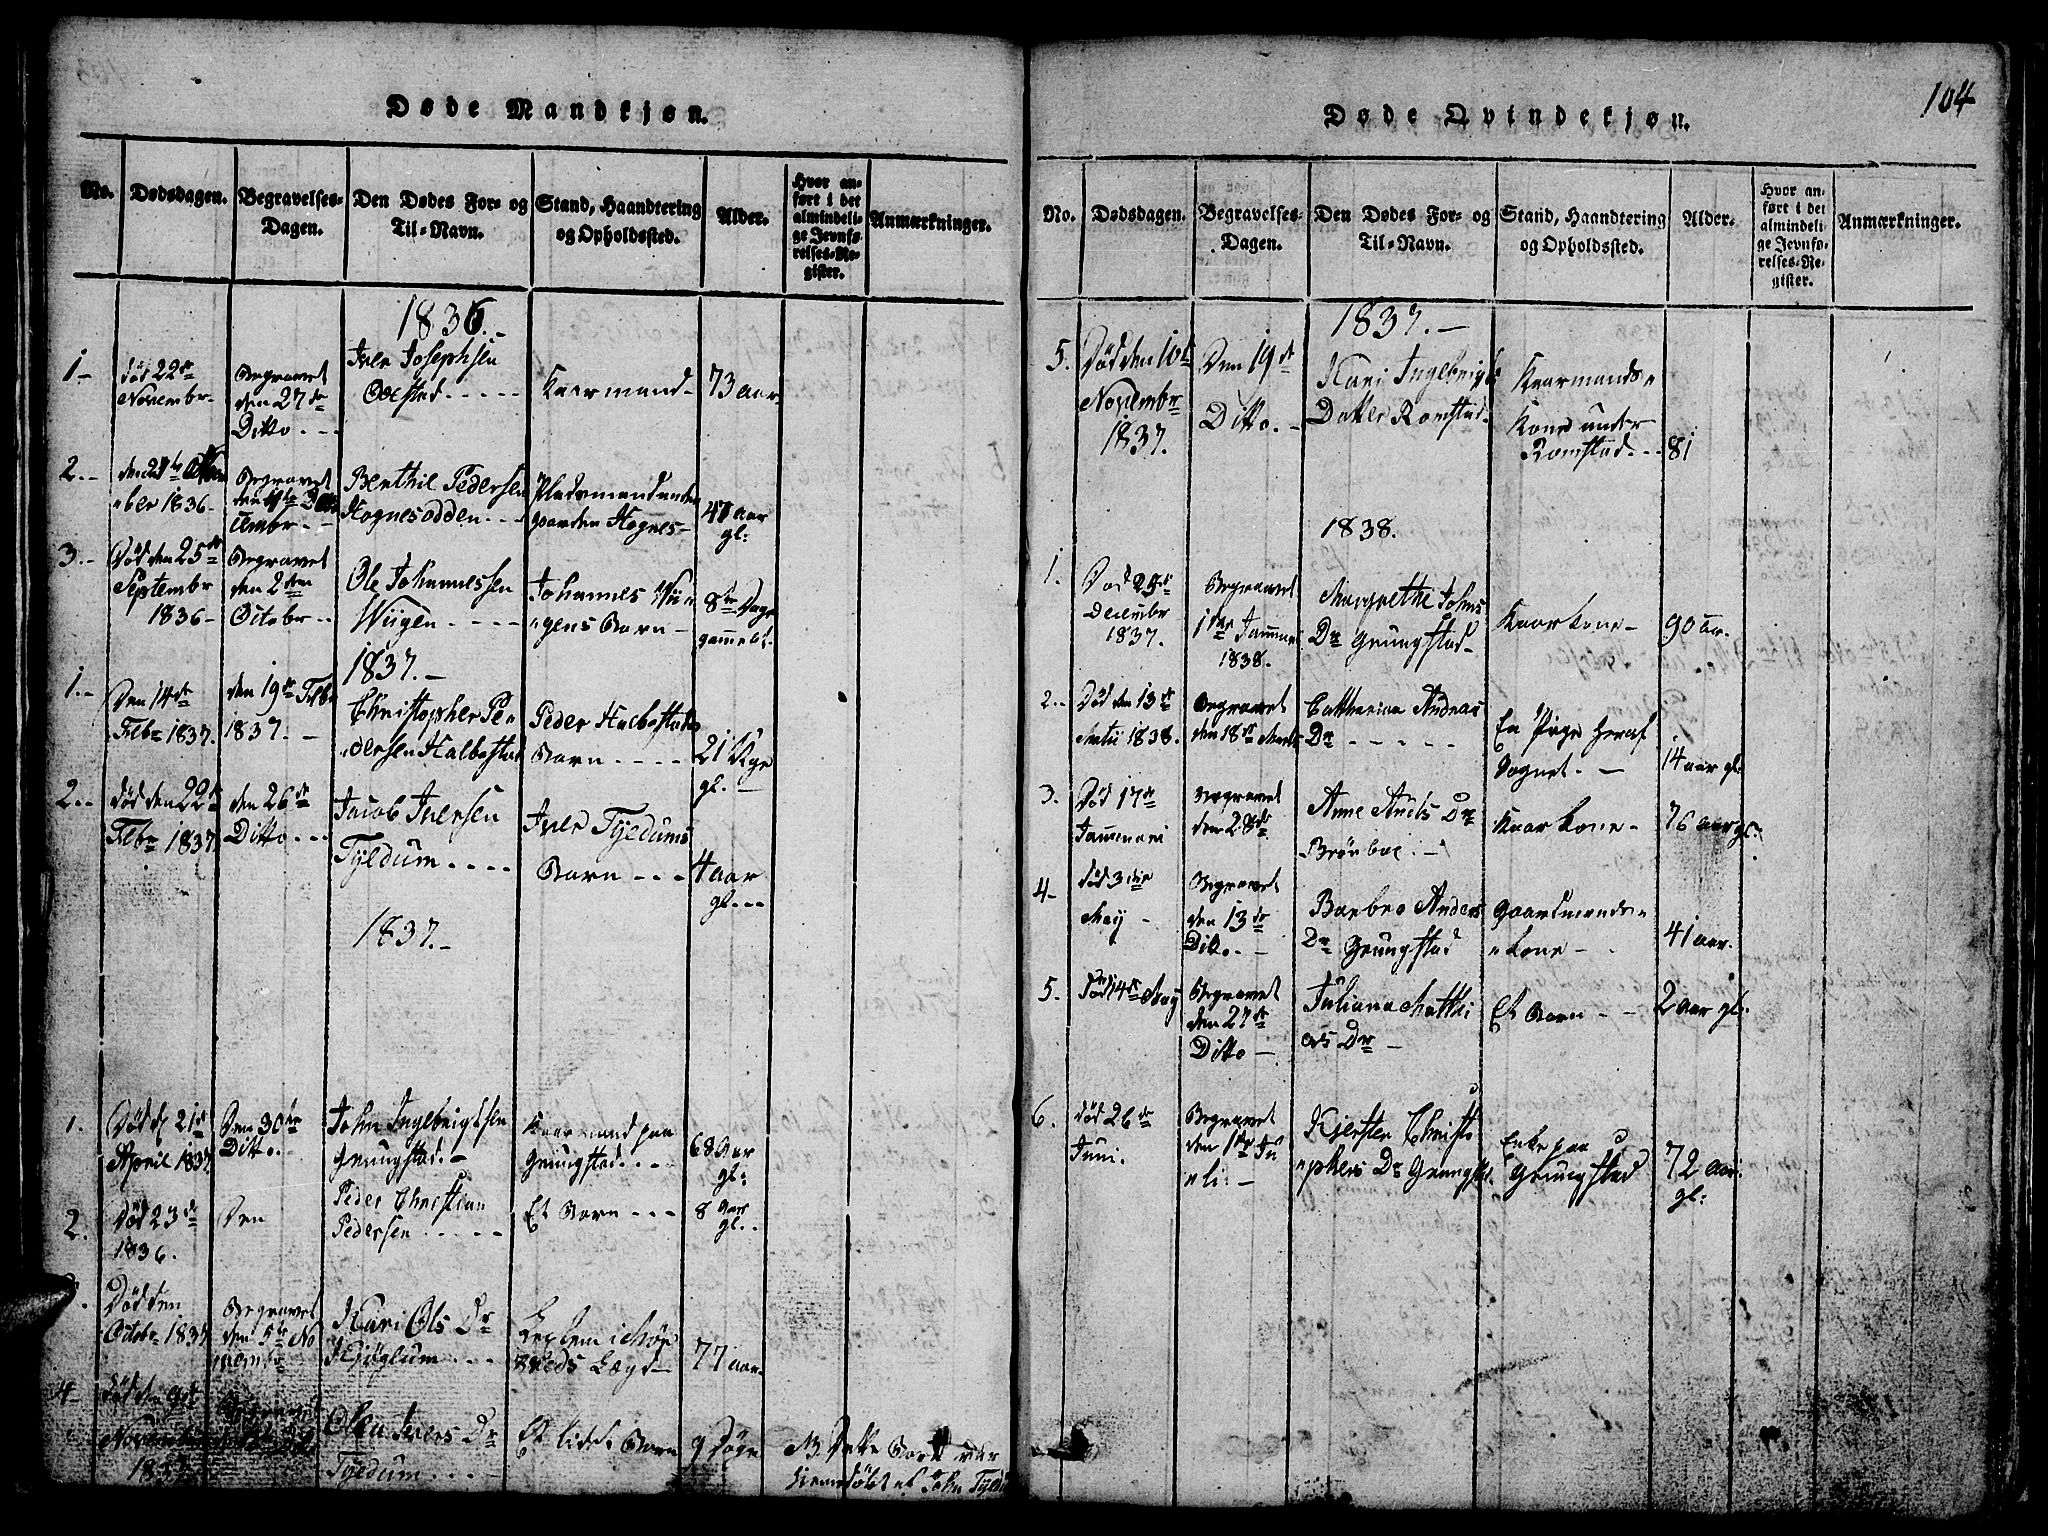 104
Døde Mandkjøn.
No.
Dødsdagen.
Begravelses-
Dagen.
Den Dødes For- og
Til-Navn.
Stand, Haandtering
og Opholdssted.
Alder.
Hvor an-
ført i det
almindeli-
ge Jevnfø-
relses-Re-
gister.
Anmærkninger.
1836.-
1-
død 22de
Novembr-
Begravet
den 27de
Ditto . - -
Iver Josephsen
Kaarmand-
73 aar-
2.-
ber 1836-
Begravet
Berthil Pedersen
Hognesodden - - -
Pladsmand under
gaarden Hognes-
47 aar
gl:
3.-
Død den 25de
Septembr
1836-
Begravet
den 2den
Octobr --
Ole Johannessen
Wiigen - - - -
Johannes Wii-
gens Barn -
8te Dage
gammel.
1837.-
1.-
Den 14de
Febr 1837.
den 19de Febr
1837. -
Christopher Pe
dersen Halbostad
Peder Halbostads
Barn - - - -
21 Uger
gl. -
2.-
død den 22de
Febr 1837.
den 26de
Ditto - - -
Jacob Iversen
Tyldum - - - -
Iver Tyldums
Barn - - -
4 aar
gl. - -
1837.-
1.
Død d 21de
April 1837.
Den 30te
Ditto.
John Ingebrigtsen
Grungstad.-
Kaarmand paa
Grungstad. - -
68 Aar
gl:
2.
Død 23de
1836.
Den
Peder Christian
Pedersen - - - - -
Et Barn - - -
8 Aar
gl. -
Død den
Octobr 1837
Begravet
den 5te No
Kari Ols Dr
Kjøglum - - -
Leglem i
Lægd-
77 aar.
4-
Død den 9de
November
1837
Olen Ivers Dr
Tyldum - - -
Et lidet Barn
9 Døgn
NB Dette Barn var
hjemdøbt af John Tyldum
Døde Qvindekjøn.
No.
Dødsdagen.
Begravelses-
Dagen.
Den Dødes For- og
Til-Navn.
Stand, Haandtering
og Opholdssted.
Alder.
Hvor an-
ført i det
almindeli-
ge Jevnfø-
relses-Re-
gister.
Anmærkninger.
1837.-
5.
Død den 10de
Novembr
1837.
Den 19de
Ditto. -
Kari Ingebrigts
Datter Romstad.
Kaarmands
Kone under
Romstad. - -
81
1838.
1.
Død 25de
Decembr
1837.
Begravet
1ste Januar
1838.
Margrethe Johns
Dr Grungstad-
Kaarkone-
90 ar.
2.-
Død den 13de
Martii 1838.
Begravet
den 18de Marts
Catharina Andreas
Dr - - - - -
En Pige heraf
Sognet. -
14 aar gl.
3.
Død 17de
Januari
Begravet
den 28de
Anne Anders Dr
Kaarkone-
76 aar gl.
4-
død 3die
May -
Begravet
den 13de
Ditto. -
Barbro Anders
Dr Grungstad
Gaardmands
kone -
41 aar.
5.
Død 14de May
Begravet
den 27de
Ditto -
Juliana Matthi
as Dr -
Et Barn - -
2 aar gl.
6.
død 26de
Juni.
Begravet
den 1ste Ju
li. -
Kjersten Christo
phers Dr Grungstad.
Enke paa
Grungstad
72 aar
gl.